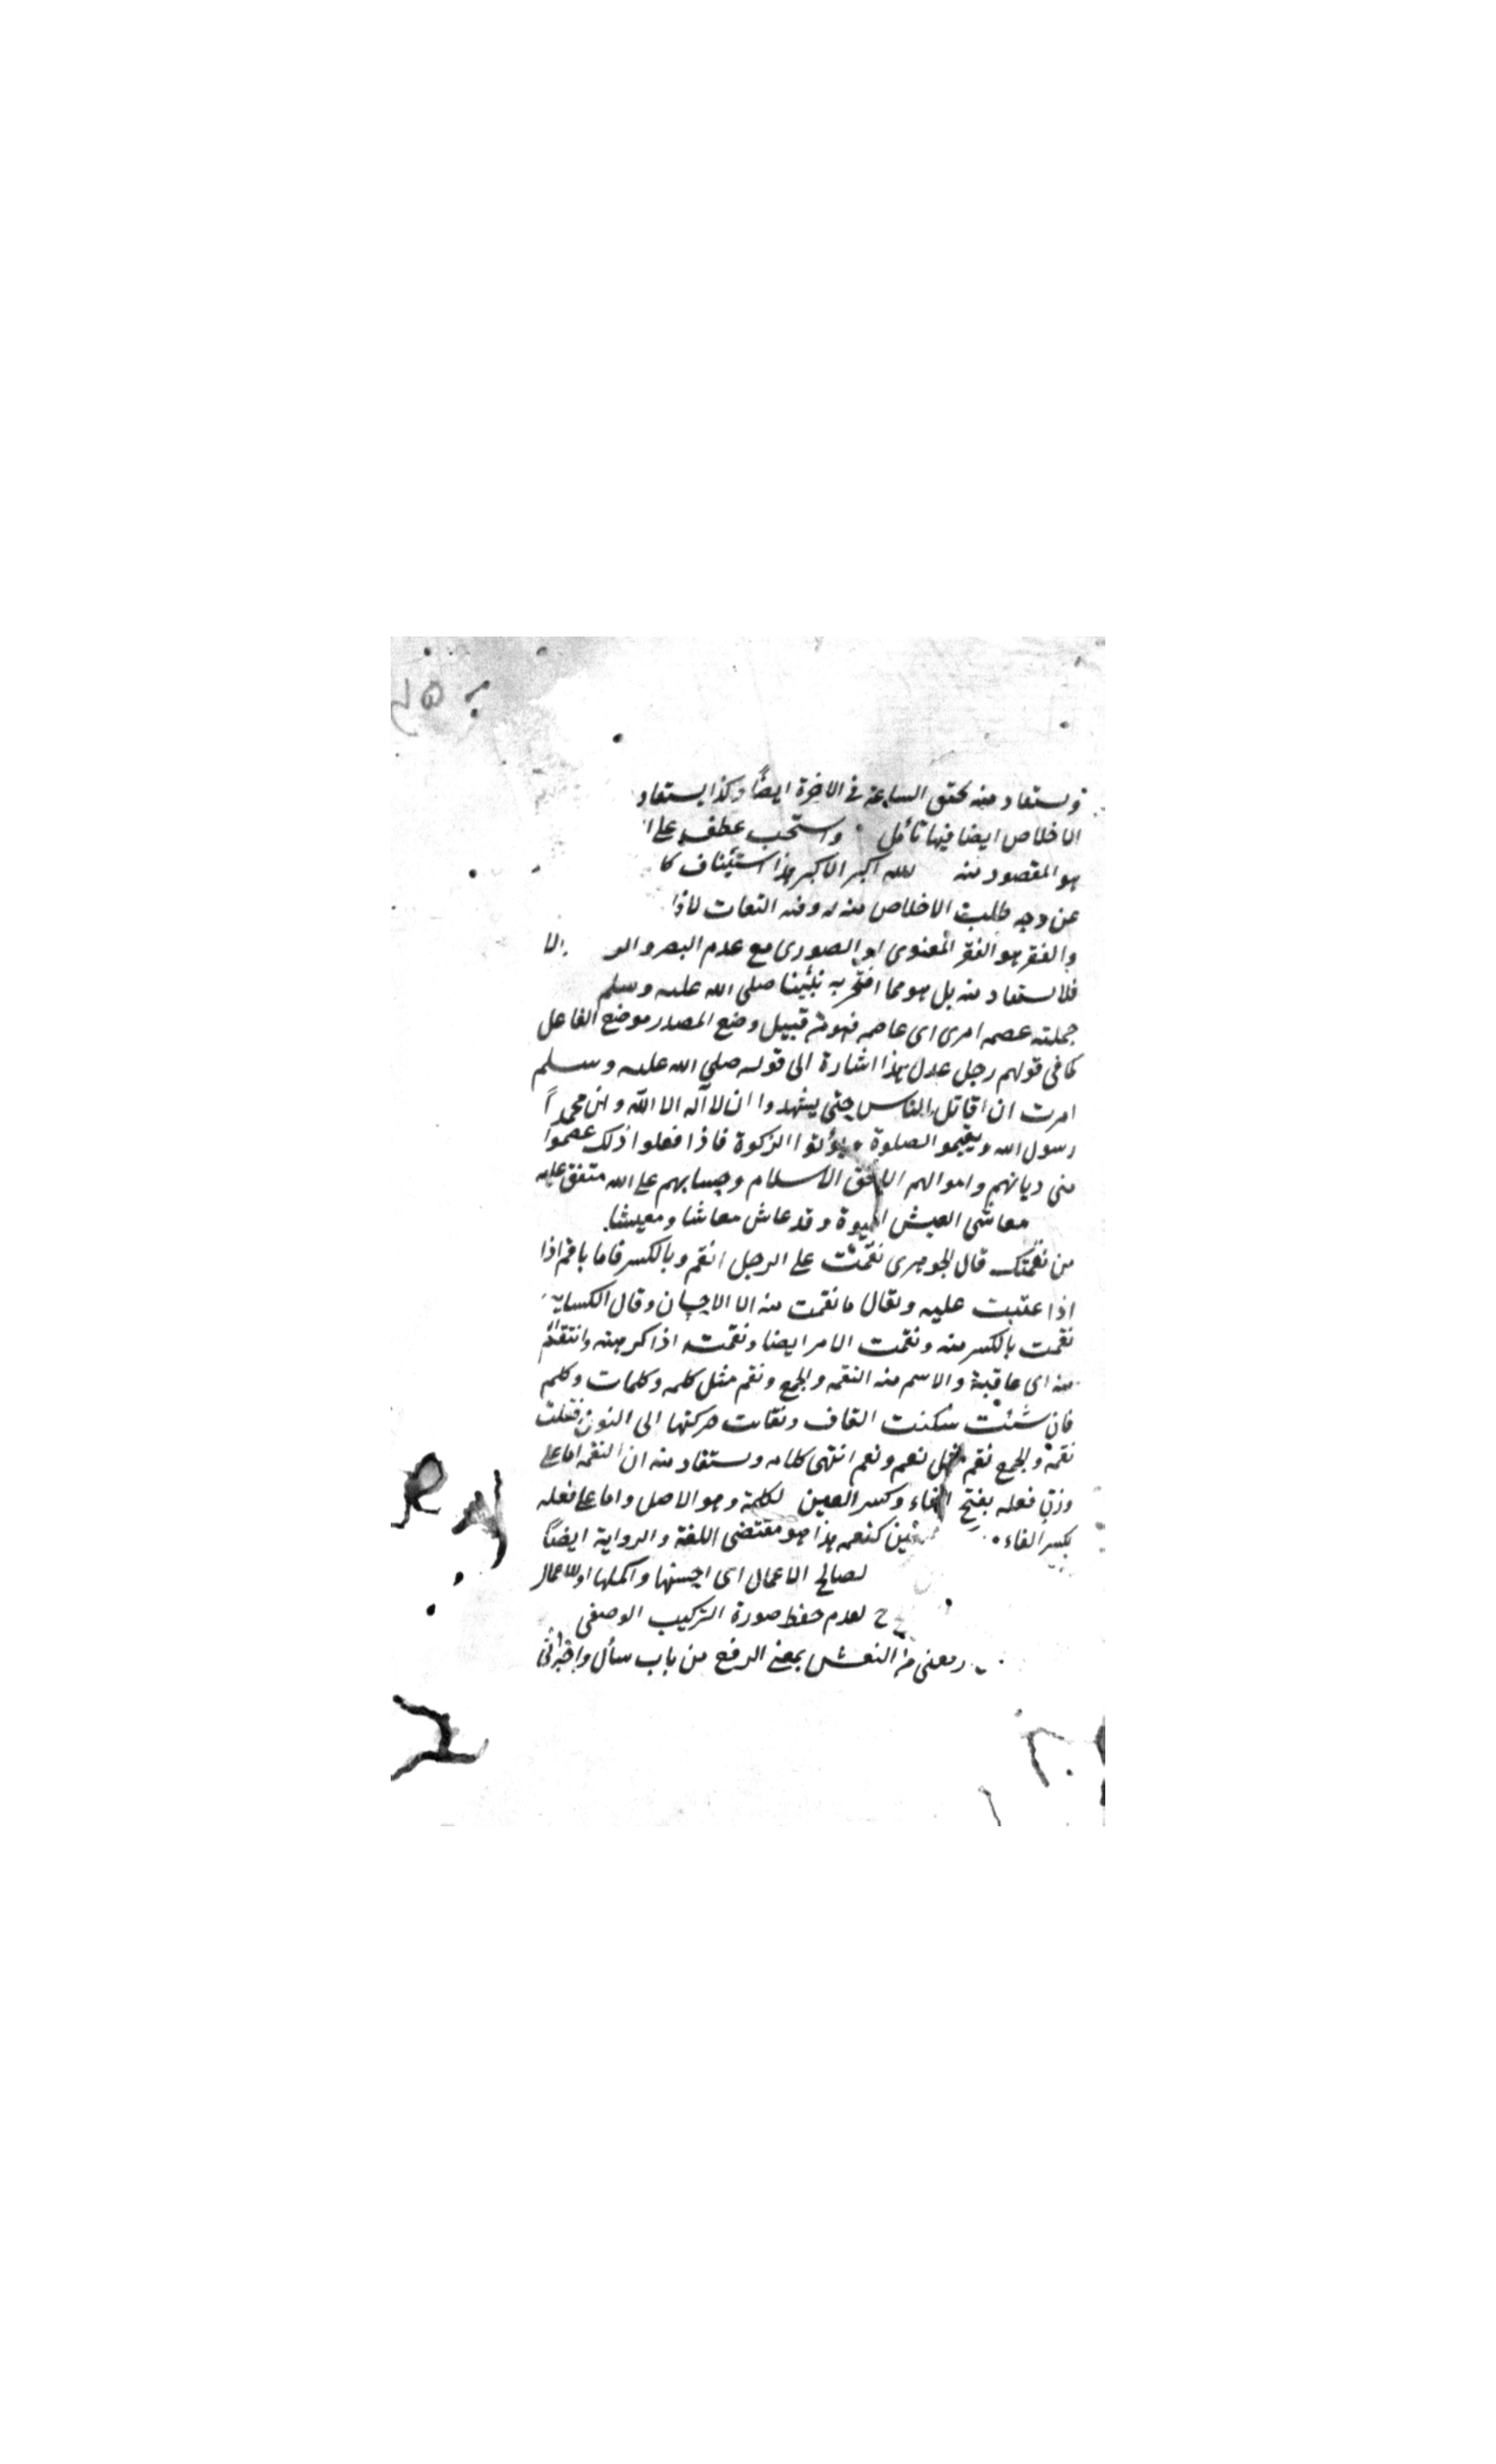 ويستفاد منه تحقق الساعة في الاخرة ايضاً وكذا يستفاد
الاخلاص ايضا فيها تأمل واستجب عطف على
هو المقصود منه الله اكبر الاكبر هذا استيناف كا
عن وجه طلب الاخلاص منه
والفقر هو الفقر المعنوى او الصورى مع عدم البصر الا
فلا يستعاذ منه بل هو مما افتخر به نبينا صلى الله عليه وسلم
جملته عصمه امرى اى عاصمه فهو من قبيل وضع المصدر موضع الفاعل
كما فى قولهم رجل عدل هذا اشارة الى قوله صلى الله عليه وسلم
امرت ان اقاتل الناس حتى يشهدوا ان لا اله الا الله وان محمداً
رسول الله ويقيموا الصلوة ويؤتوا الزكوة فاذا فعلوا ذلك عصموا
منى دمائهم واموالهم الا بحق الاسلام وحسابهم على الله متفق عليه
معاشى العيش الحيوة وقد عاش معاشا ومعيشا.
من نقمتك قال الجوهرى نقمت على الرجل انقم وبالكسر فانا ناقم اذا
اذا عتبت عليه ويقال ما نقمت منه الا الاحسان وقال الكسايى
نقمت بالكسر منه ونقمت الامر ايضا ونقمته اذا كرهته وانتقم الله
منه اى عاقبه والاسم منه النقمه والجمع ونقم مثل كلمه وكلمات وكلم
فان شئت سكنت القاف ونقلت حركتها الى النون فقلت
نقمة والجمع نقم مثل نعمه ونعم انتهى كلامه ويستفاد منه ان النقمه اما على
وزن فعله بفتح الفاء وكسر العين لكلمة وهو الاصل واما على فعله
بكسر الفاء كنعمه هذا هو مقتضى اللغة والرواية ايضاً
لصالح الاعمال اى احسنها واكملها
لعدم حفظ صورة التركيب الوصفى
النعش بمعنى الرفع من باب سأل